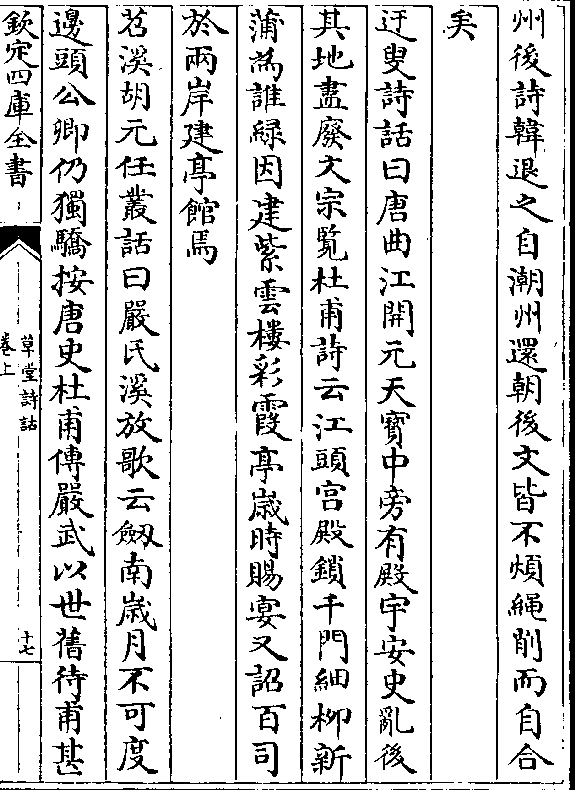 州後詩韓退之自潮州還朝後文皆不煩繩削而自合
矣
迂叟詩話曰唐曲江開元天寳中旁有殿宇安史亂後
其地盡廢文宗覧杜甫詩云江頭宫殿鎖千門細柳新
蒲為誰緑因建紫雲樓彩霞亭歳時賜宴又詔百司
於兩岸建亭館焉
苕溪胡元任叢話曰嚴氏溪放歌云劔南歳月不可度
邊頭公卿仍獨驕按唐史杜甫傳嚴武以世舊待甫甚
欽定四庫全書
草堂詩話
卷上
十七